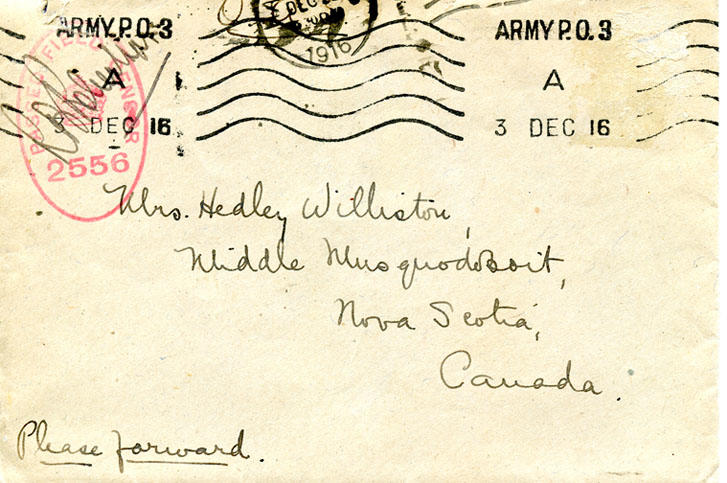 ARMY P.O. 3
A
3 DEC 16
DEC
1916
ARMY P.O. 3
A
3 DEC 16
PASSED FIELD CENSOR
2556
Mrs. Hedley Williston,
Middle Musquodoboit,
Nova Scotia,
Canada.
Please forward.